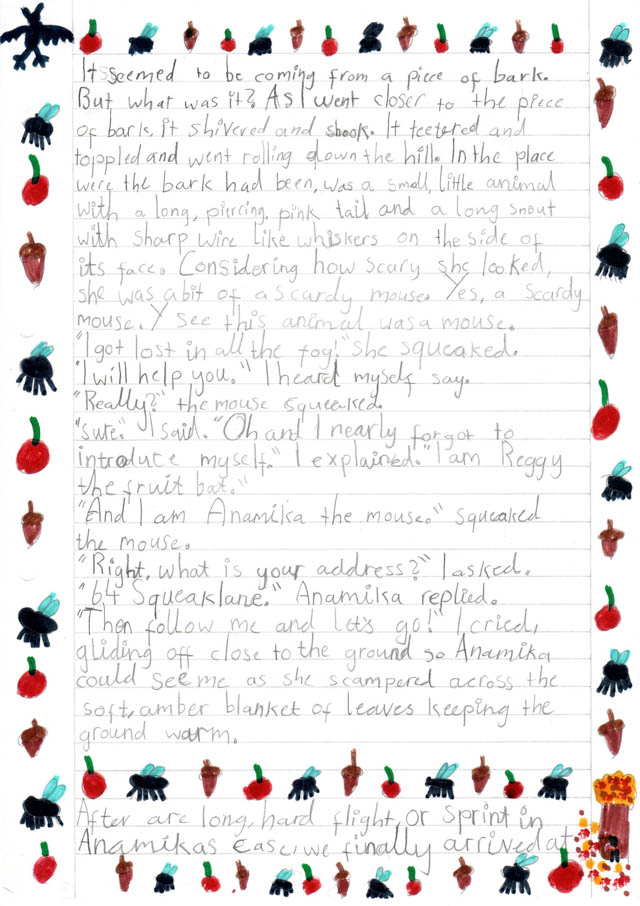 It seemed to be coming from a piece of bark.
But what was it? As I went closer to the piece
of bark, it shivered and shook. It teetered and
toppled and went rolling down the hill. In the place
were the bark had been, was a small, little animal
with a long, piercing, pink tail and a long snout
with sharp wire like whiskers on the side of
its face. Considering how scary she looked,
she was a bit of a scardy mouse. Yes, a scardy
mouse. Y see this animal was a mouse.
"I got lost in all the fog!" she squeaked.
"I will help you." I heard myself say.
"Really?" the mouse squeaked.
"Sute." I said. "Oh and I nearly forgot to
introduce myself." I explained. "I am Reggy
the fruit bat."
"And I am Anamika the mouse." squeaked
the mouse.
"Right, what is your address?" I asked.
"64 Squeaklane." Anamika replied.
"Then follow me and lets go!" I cried,
gliding off close to the ground so Anamika
could see me as she scampered across the
soft, amber blanket of leaves keeping the
ground warm.
After are long, hard flight, or sprint in
Anamikas case, we finally arrived at